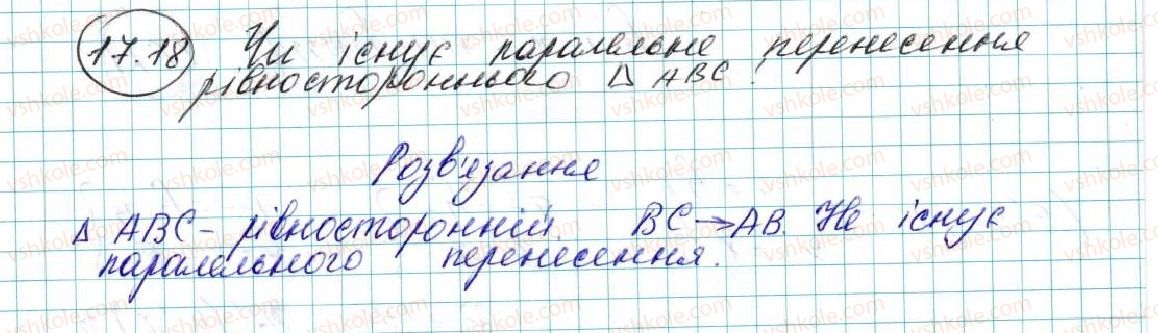 17.18 Чи існує паралельне перенесення
рівностороннього Δ ABC?
Розв'язання
Δ ABC - рівносторонній BC → AB. Не існує
паралельного перенесення.